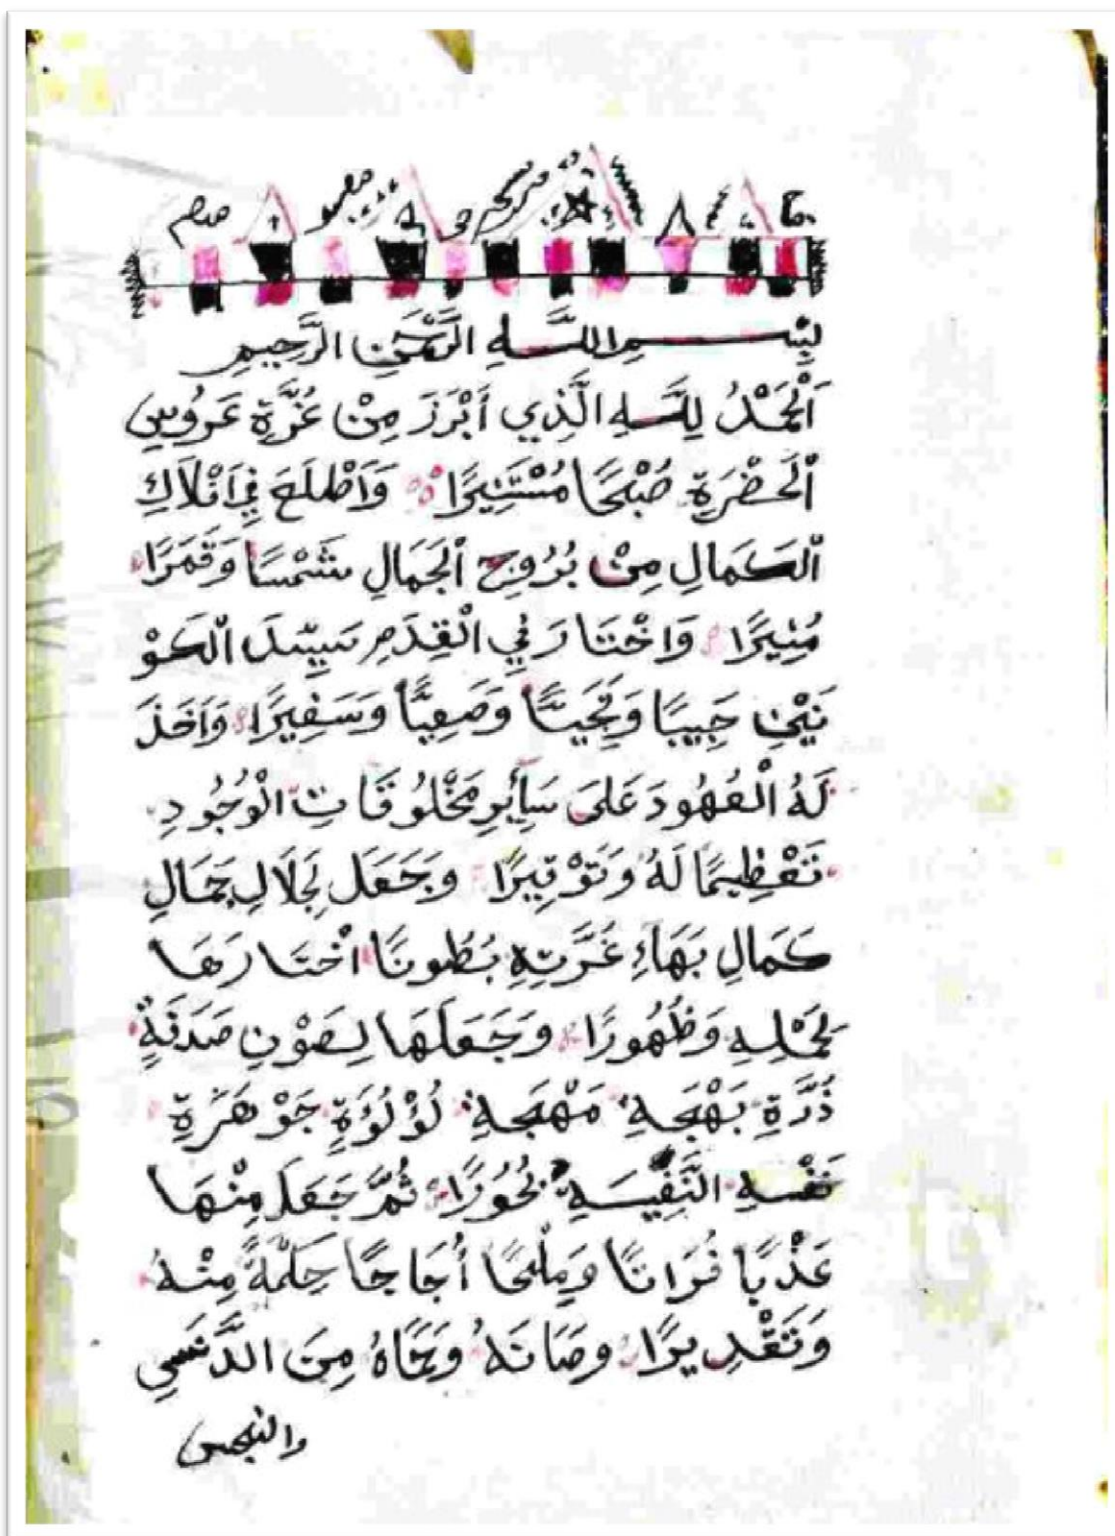 بِسْمِ اللَّهِ الرَّحْمَٰنِ الرَّحِيمِ
اَلْحَمْدُ لِلَّهِ الَّذِي أَبْرَزَ مِنْ غُرَّةِ عَرُوسِ
اَلْحَضْرَةِ صُبْحًا مُسْتَنِيرًا وَأَطْلَعَ فِي أَفْلَاكِ
اَلْكَمَالِ مِنْ بُرُوجِ اَلْجَمَالِ شَمْسًا وَقَمَرًا
مُنِيرًا وَاخْتَارَ فِي الْقِدَمِ سَيِّدَ الْكَوْ
نَيْنِ حَبِيبًا وَنَجِيًّا وَصَفِيًّا وَسَفِيرًا وَأَخَذَ
لَهُ الْعُهُودَ عَلَى سَائِرِ مَخْلُوقَاتِ الْوُجُودِ
تَعْظِيمًا لَهُ وَتَوْقِيرًا وَجَعَلَ لِجَلَالِ جَمَالِ
كَمَالِ بَهَاءِ غُرَّتِهِ بُطُونًا اخْتَارَهَا
لِحَمْلِهِ وَظُهُورًا وَجَعَلَهَا لِصَوْنِ صَدَفَةِ
دُرَّةِ بَهْجَةِ مَهْجَةِ لُؤْلُؤَةِ جَوْهَرَةِ
نَفْسِهِ النَّفِيسَةِ بُحُورًا ثُمَّ جَعَلَ مِنْهَا
عَذْبًا فُرَاتًا وَمِلْحًا أُجَاجًا حِكْمَةً مِنْهُ
وَتَقْدِيرًا وصَانَهُ وَحَمَاهُ مِنَ الدَّنَسِ
والنجس